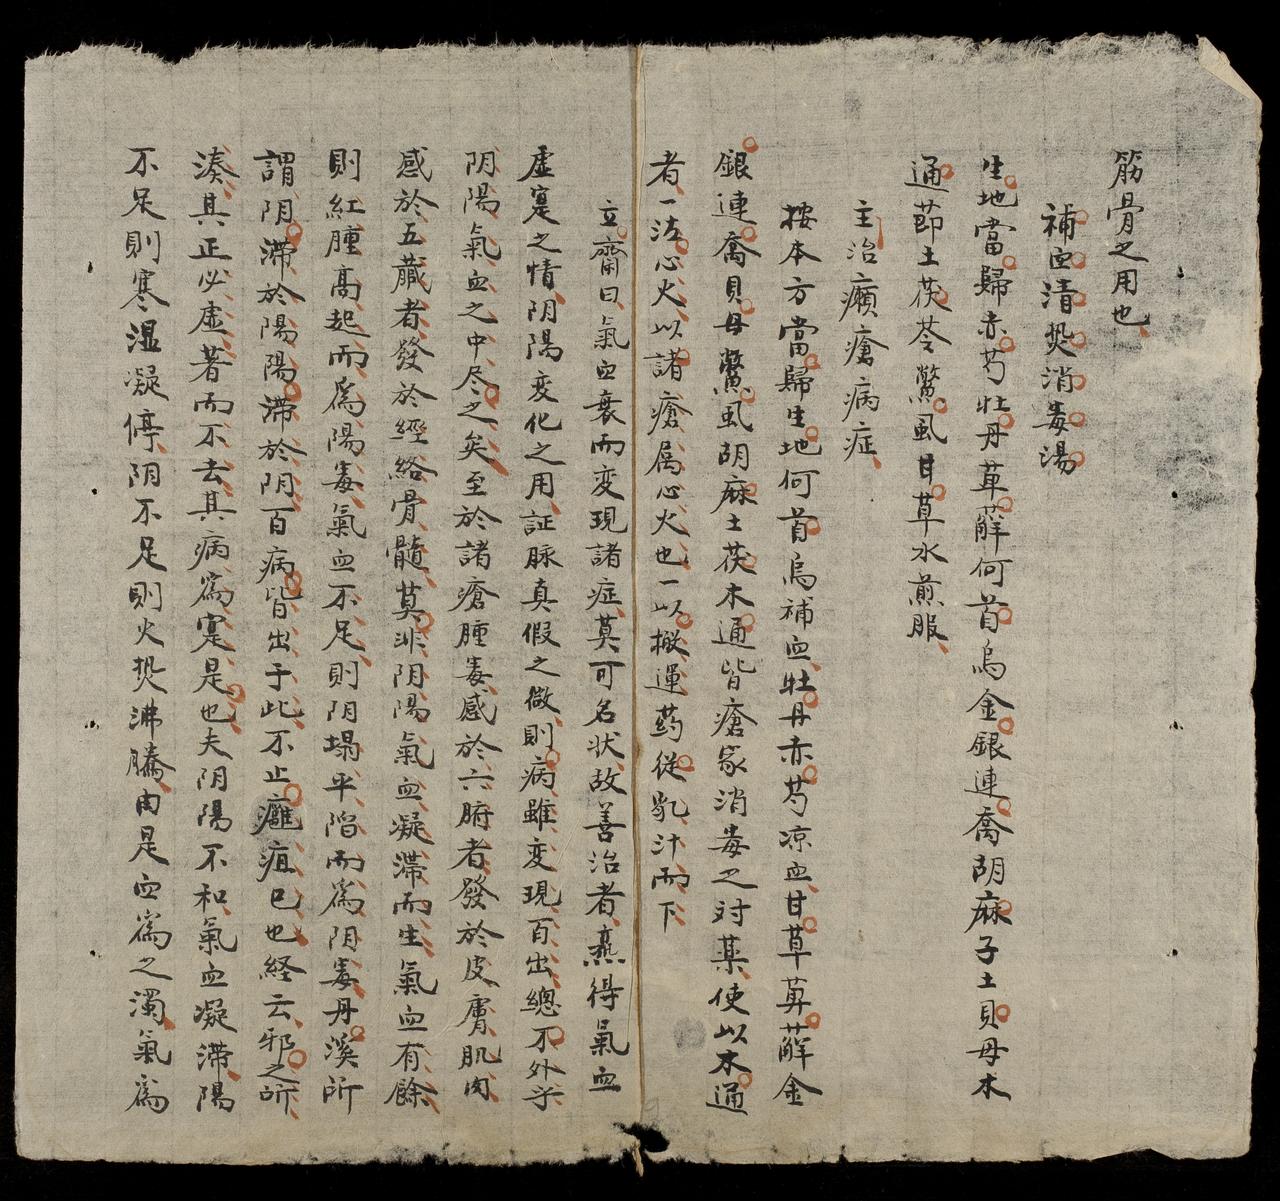 筋骨之用也
補血清热消毒湯
生地當歸赤芍牡丹萆薢何首烏金銀連喬胡麻子土貝母木
通節土茯苓鱉虱甘草水煎服
主治癩瘡病症
按本方當歸生地何首烏補血牡丹赤芍凉血甘草萆薢金
銀連喬貝母鱉虱胡麻土茯木通皆瘡家消毒之対薬使以木通
者一法心火以諸瘡属心火也一以搬運药從乳汁而下
立齋曰氣血衰而変現諸症莫可名状故善治者燕得氣血
虛寔之情阴陽変化之用証脉真假之做則病雖変現百出總不外乎
阴陽氣血之中尽之矣至於諸瘡腫毒感於六腑者發於皮膚肌肉
感於五藏者發於經絡骨髓莫非阴陽氣血凝滞而生氣血有餘
則紅腫高起而爲陽毒氣血不足則阴塌平陷而爲阴毒丹溪所
謂阴滞於陽陽滞於阴百病皆出于此不止癰疽已也経云邪之所
湊其正必虛著而不去其病爲寔是也夫阴陽不和氣血凝滞陽
不足則寒湿凝停阴不足則火热沸騰由是血爲之濁氣爲